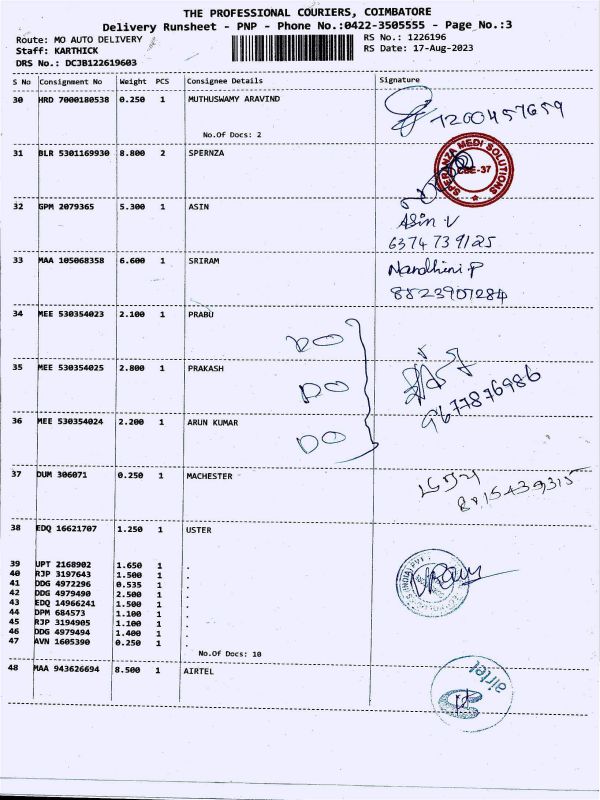 THE PROFESSIONAL COURIERS, COIMBATORE
Delivery Runsheet - PNP - Phone No.:0422-3505555 - Page No.:3
Route: MO AUTO DELIVERY RS No.: 1226196
Staff: KARTHICK RS Date: 17-Aug-2023
DRS No.: DCJB122619603
S No Consignment No Weight PCS Consignee Details Signature
30 HRD 7000180538 0.250 1 MUTHUSWAMY ARAVIND
7200457659
No.Of Docs: 2
31 BLR 5301169930 8.800 2 SPERNZA
SPERANZA MEDI SOLUTIONS
CBE-37
32 GPM 2079365 5.300 1 ASIN
Asin V
6374739125
33 MAA 105068358 6.600 1 SRIRAM
Nandhini P
8823907284
34 MEE 530354023 2.100 1 PRABU
DO
35 MEE 530354025 2.800 1 PRAKASH
DO
9677876986
36 MEE 530354024 2.200 1 ARUN KUMAR
DO
37 DUM 306071 0.250 1 MACHESTER
8815439315
38 EDQ 16621707 1.250 1 USTER
39 UPT 2168902 1.650 1 .
40 RJP 3197643 1.500 1 .
41 DDG 4972296 0.535 1 .
42 DDG 4979490 2.500 1 .
43 EDQ 14966241 1.500 1 .
44 DPM 684573 1.100 1 .
45 RJP 3194905 1.100 1 .
46 DDG 4979494 1.400 1 .
47 AVN 1605390 0.250 1 .
(INDIA) PVT
No.Of Docs: 10
48 MAA 943626694 8.500 1 AIRTEL
airtel